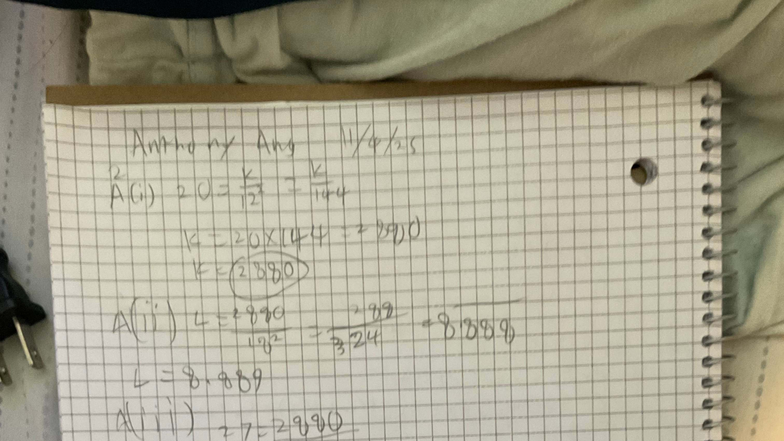 Anthony Ang 11/4/25
2
A(i) 20 = K/12² = K/144
K = 20 x 144 = 2880
K = 2880
A(ii) L = 2880/18² = 288/324 = 8.888
L = 8.889
A(iii) 27 = 2880